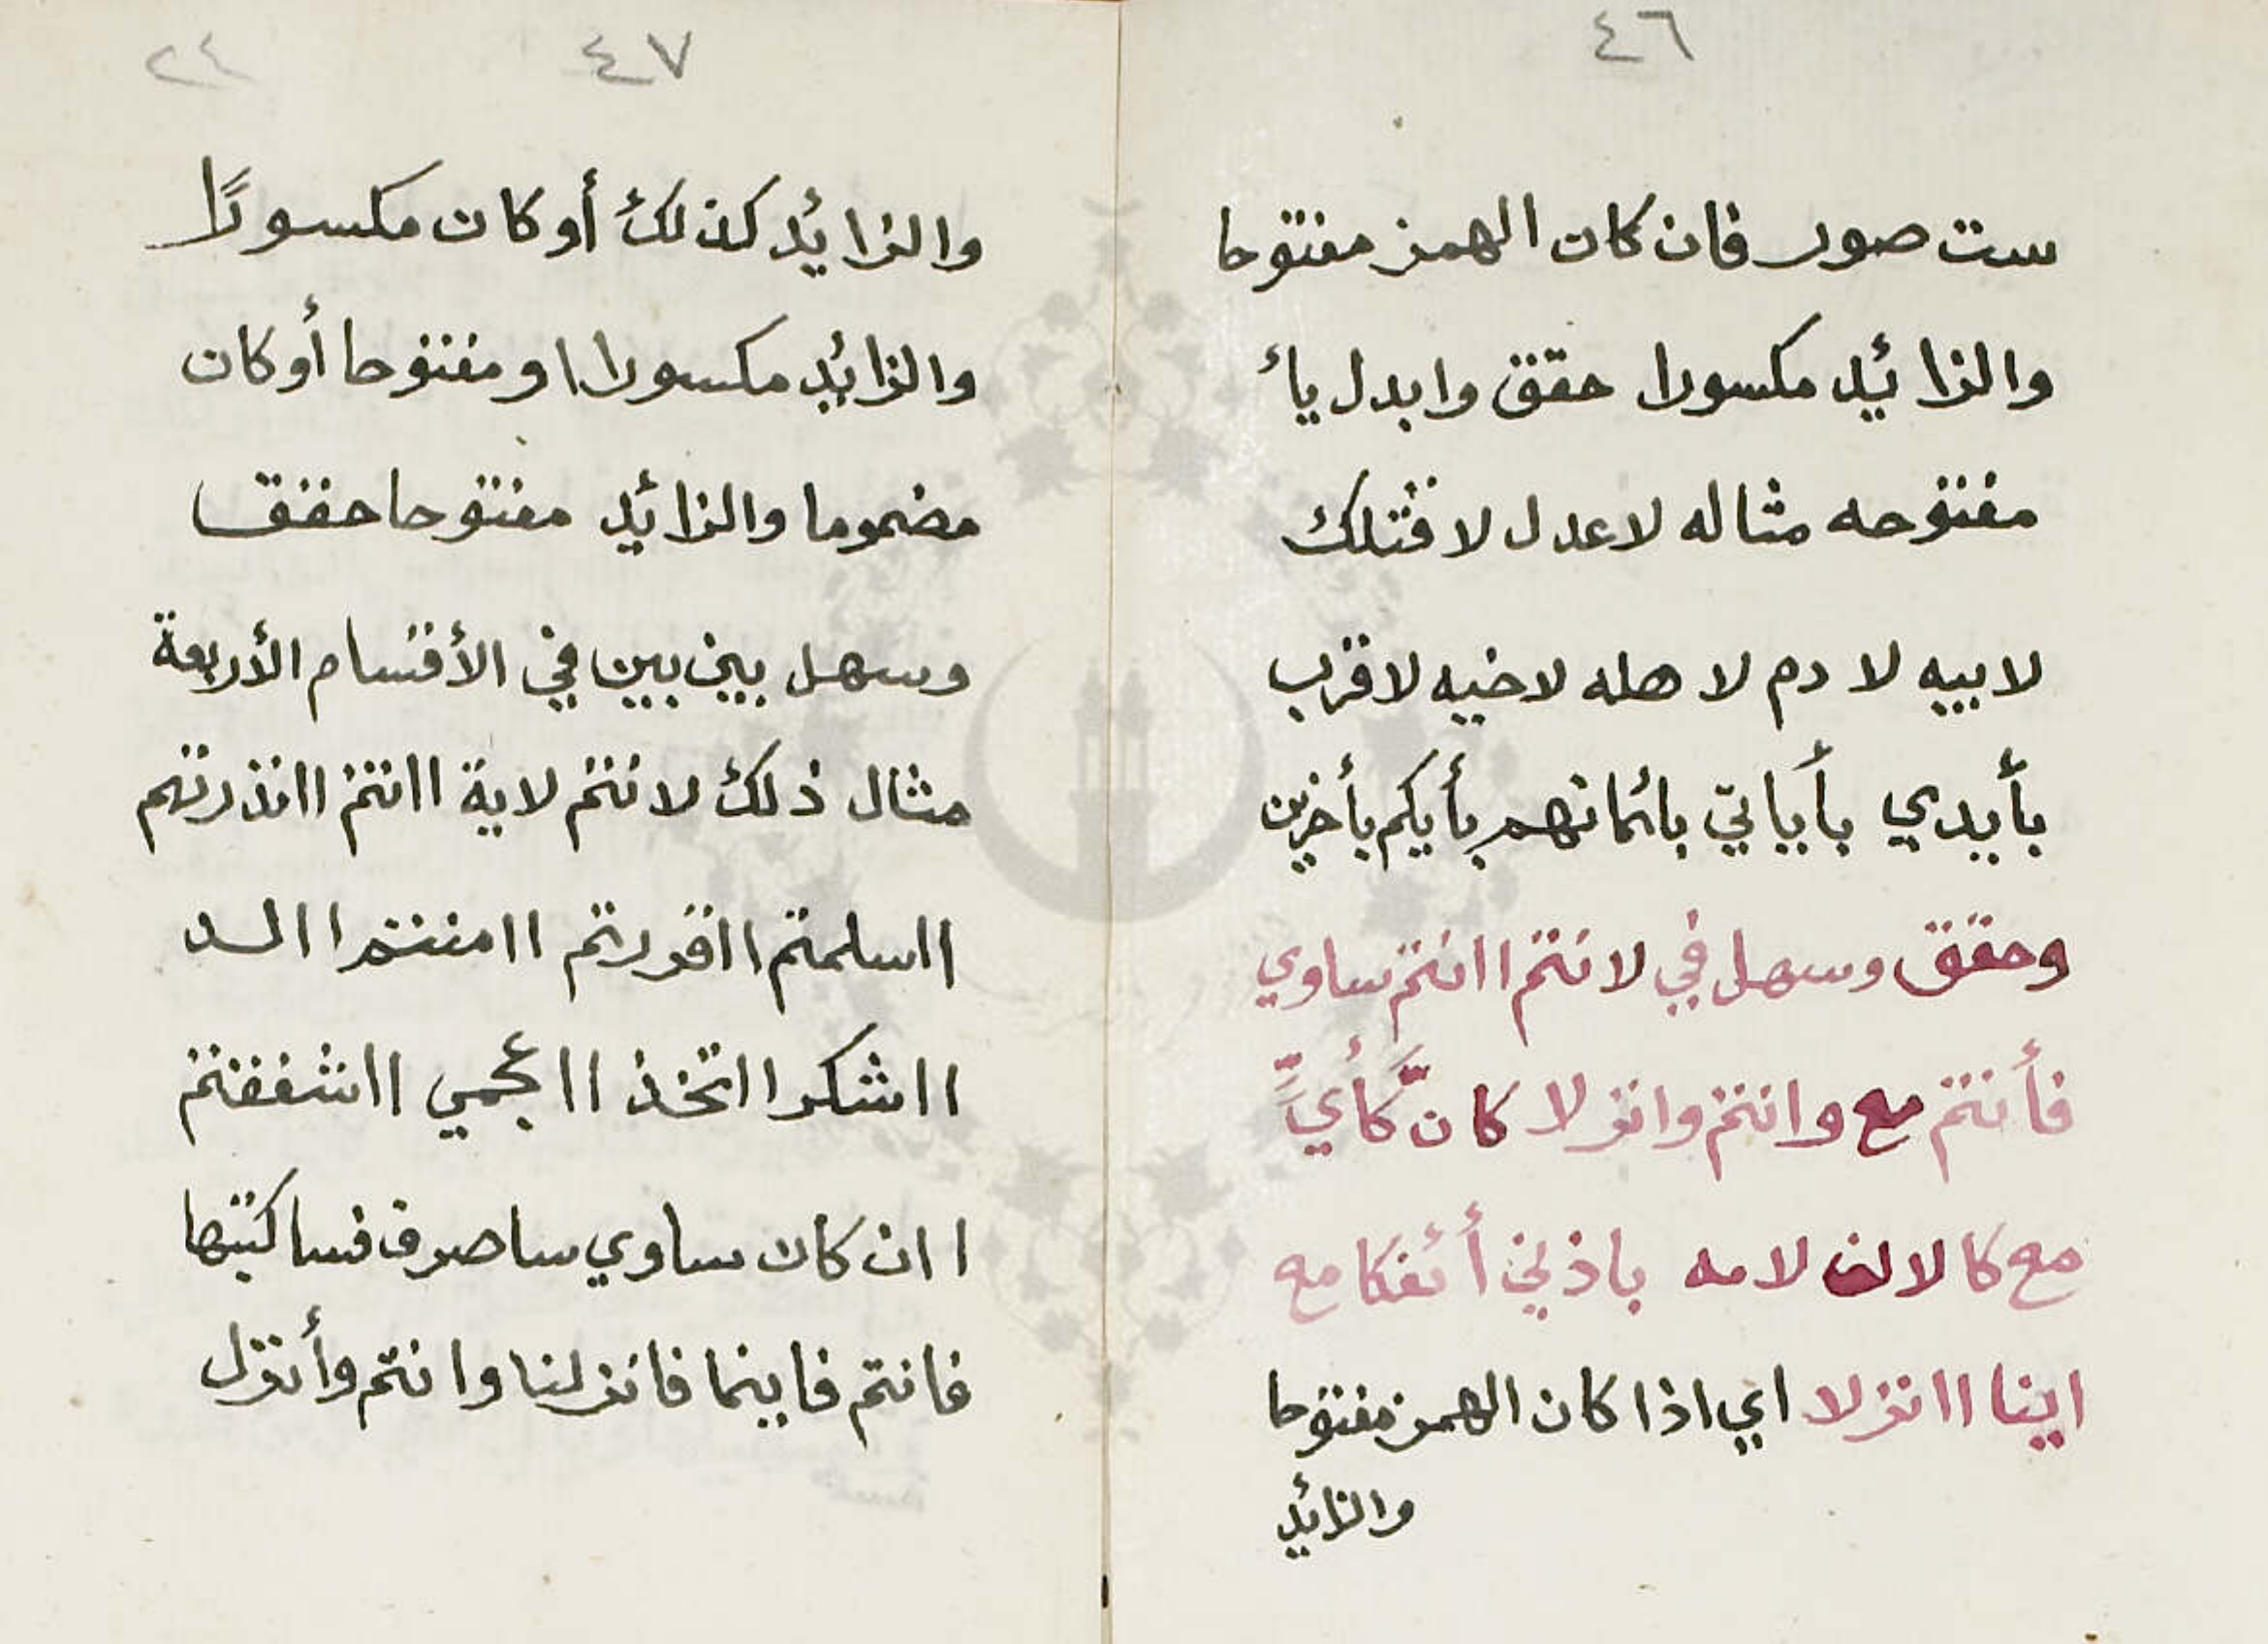 ٤٦
ست صور فان كان الهمز مفتوحا
والزائد مكسورا حقق وابدل ياء
مفتوحه مثاله لاعدل لاقتلك
لابيه لا دم لا هله لاخيه لاقرب
بأيدي بأياتي بائمانهم بأيكم بأخرين
وحقق وسهل في لانتم اانتم ساوي
فأنتم مع وانتم وانزلا كانّ كأيٍّ
مع كالالف لامه باذني أئفكا مع
اينا اانزلا اي اذا كان الهمز مفتوحا
والزائد
٤٧
٢٤
والزائد كذلك أو كان مكسورًا
والزائد مكسورا او مفتوحا أو كان
مضموما والزائد مفتوحا حقق
وسهل بين بين في الأقسام الأربعة
مثال ذلك لانتم لاية اانتم اانذرتهم
ااسلمتم ااقررتم اامنتم االد
ااشكر ااتخذ ااعجمي ااشفقتم
اان كان ساوي ساصرف فساكتبها
فانتم فاينما فانزلنا وانتم وأنزل